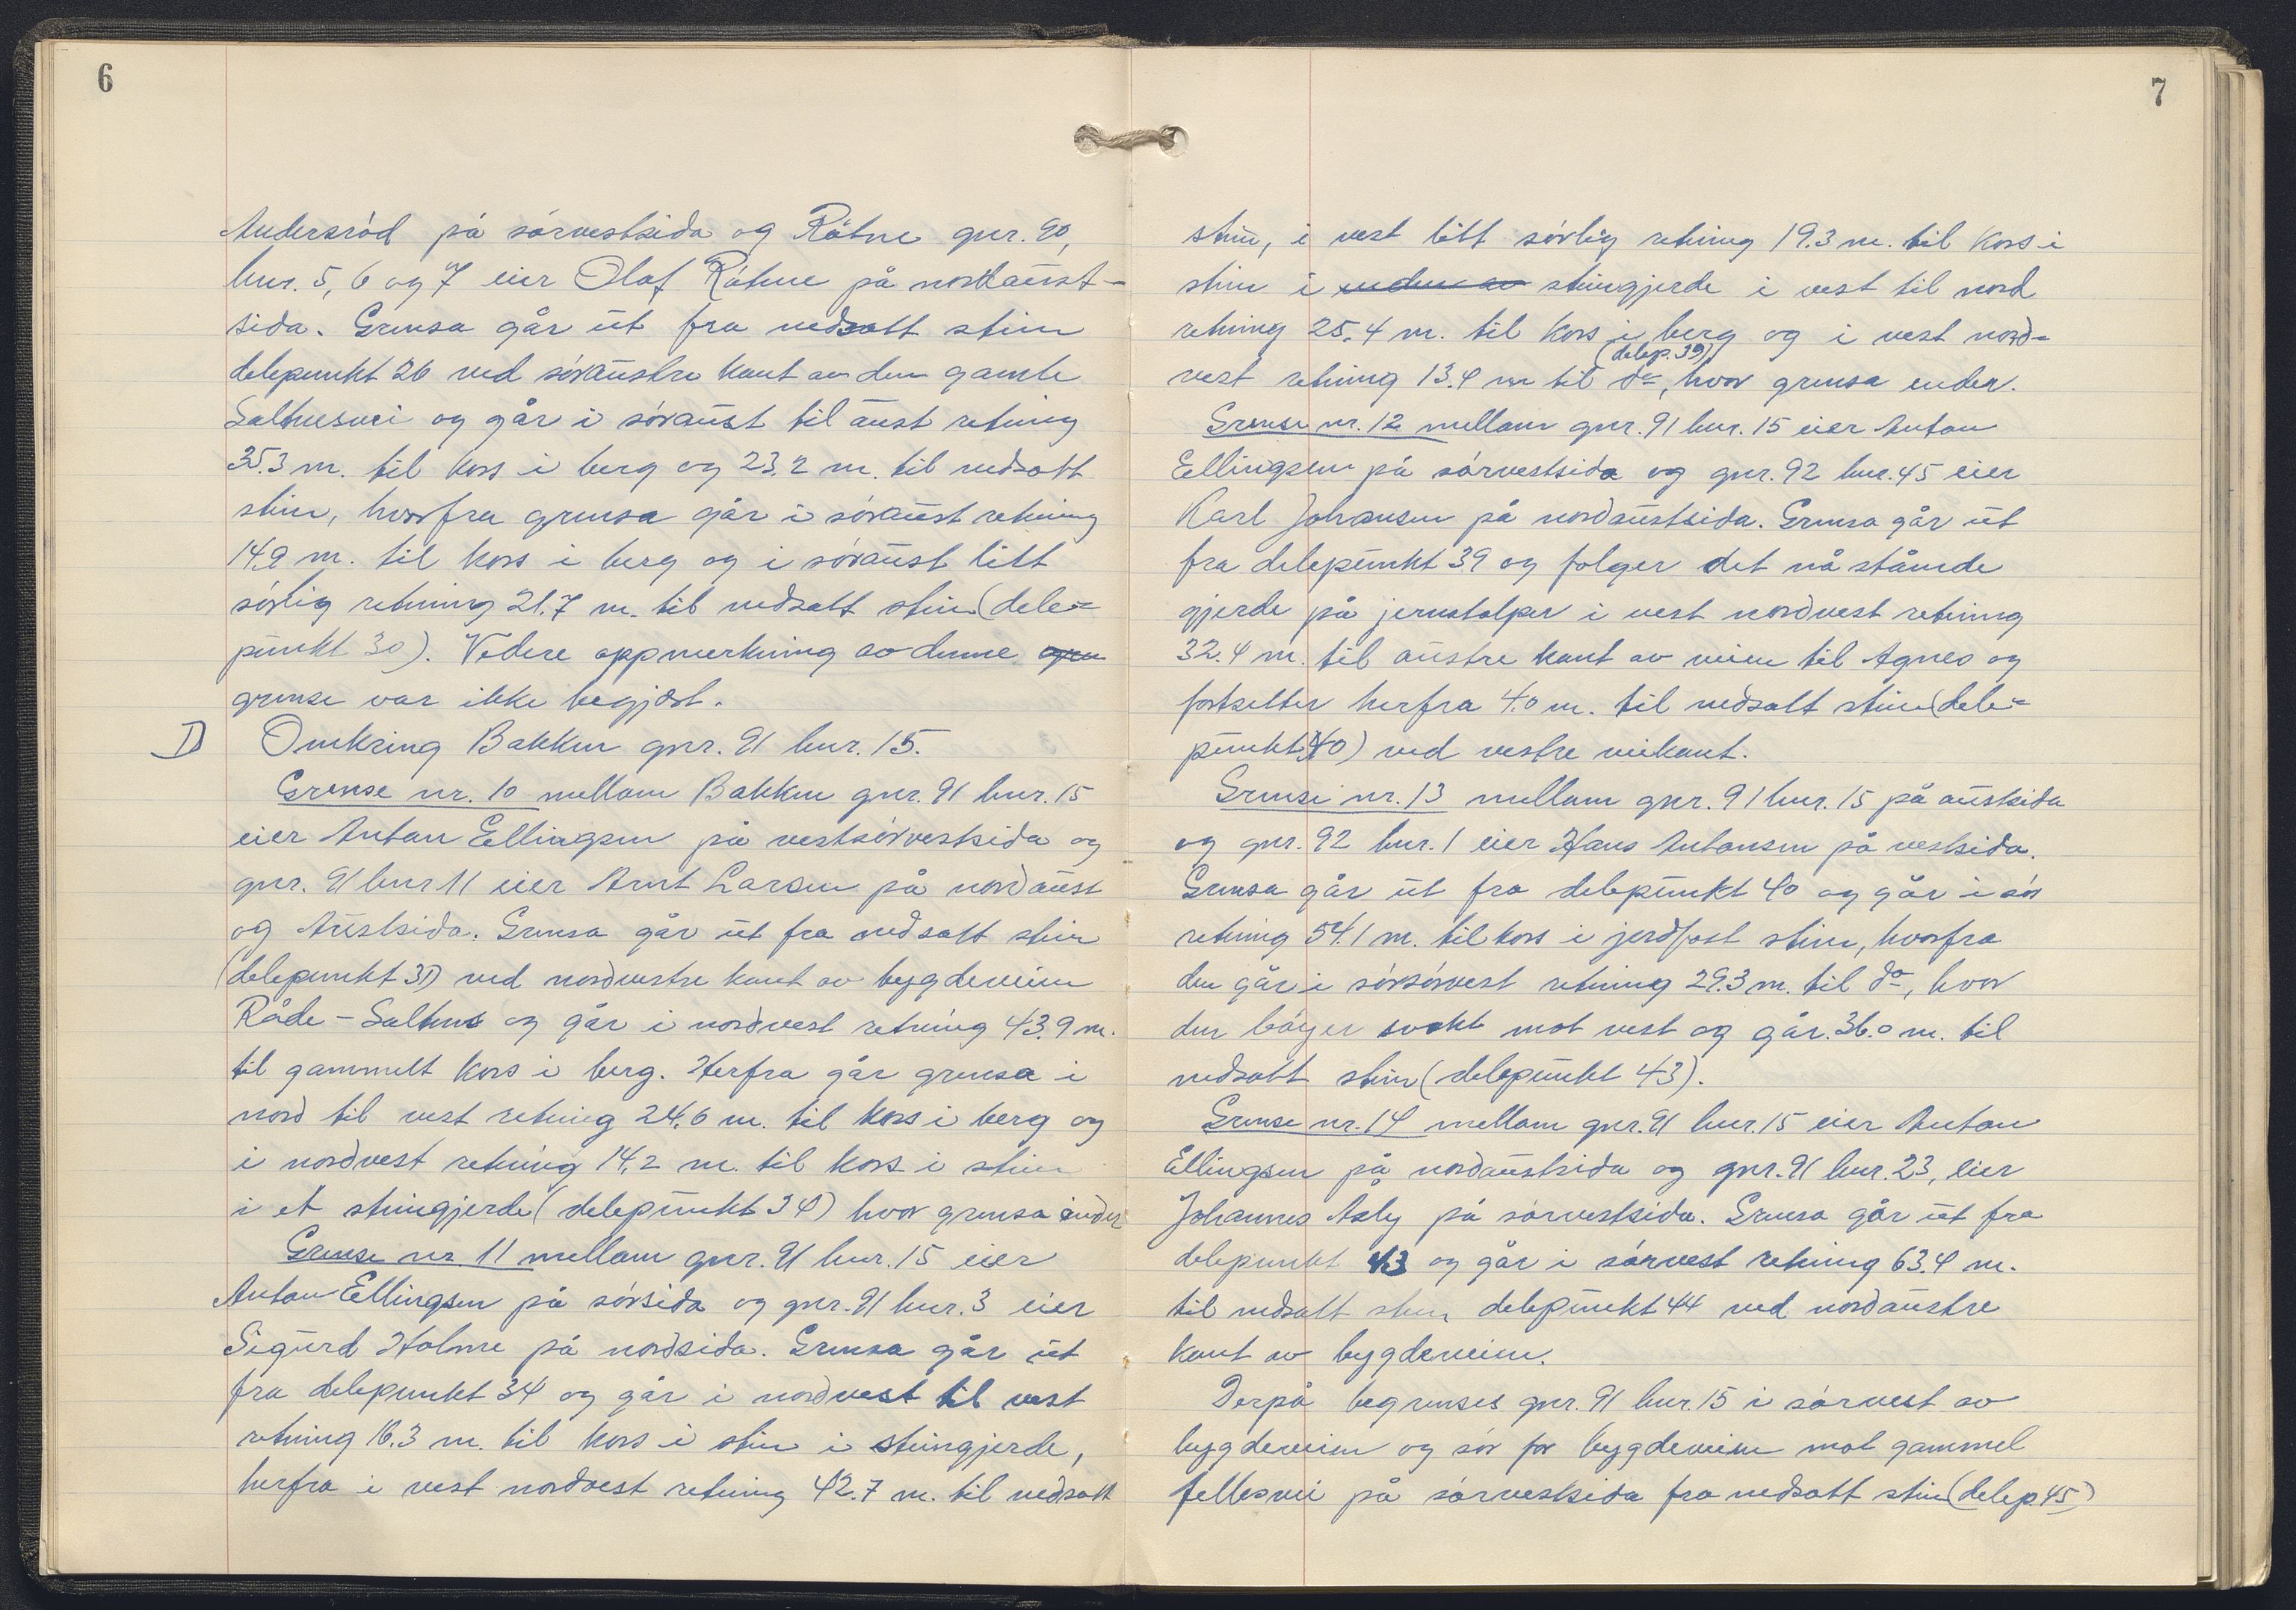 6
Andersröd på sörvestsida og Råtne gnr. 90,
bnr. 5, 6 og 7 eier Olaf Råtne på nordaust-
sida. Grensa går ut fra nedsatt stein
delepunkt 26 ved söraustre kant av den gamle
Saltnesvei og går i söraust til aust retning
35.3 m. til kors i berg og 23.2 m. til nedsatt
stein, hvorfra grensa går i söraust retning
14.9 m. til kors i berg og i söraust litt
sörlig retning 21.7 m. til nedsatt stein (dele-
punkt 30). Videre oppmerkning av denne
grense var ikke begjært.
D Omkring Bakken gnr. 91 bnr. 15.
Grense nr. 10 mellom Bakken gnr. 91 bnr. 15
eier Anton Ellingsen på vestsörvestsida og
gnr. 91 bnr 11 eier Arnt Larsen på nordaust
og Austsida. Grensa går ut fra nedsatt stein
(delepunkt 31) ved nordvestre kant av bygdeveien
Råde - Saltnes og går i nordvest retning 43.9 m.
til gammelt kors i berg. Herfra går grensa i
nord til vest retning 24.6 m. til kors i berg og
i nordvest retning 14.2 m. til kors i stein
i et steingjerde (delepunkt 34) hvor grensa ender
Grense nr. 11 mellom gnr. 91 bnr. 15 eier
Anton Ellingsen på sörsida og gnr. 91 bnr. 3 eier
Sigurd Holme på nordsida. Grensa går ut
fra delepunkt 34 og går i nordvest til vest
retning 16.3 m. til kors i stein i steingjerde,
herfra i vest nordvest retning 42.7 m. til nedsatt
7
stein, i vest litt sörlig retning 19.3 m. til kors i
stein i enden av steingjerde i vest til nord
retning 25.4 m. til kors i berg og i vest nord-
(delep. 39)
vest retning 13.4 m til do, hvor grensa ender.
Grense nr. 12 mellom gnr. 91 bnr. 15 eier Anton
Ellingsen på sörvestsida og gnr. 92 bnr. 45 eier
Karl Johansen på nordaustsida. Grensa går ut
fra delepunkt 39 og følger det nå stående
gjerde på jernstolper i vest nordvest retning
32.4 m. til austre kant av veien til Agnes og
fortsetter herfra 4.0 m. til nedsatt stein (dele-
punkt 40) ved vestre veikant.
Grense nr. 13 mellom gnr. 91 bnr. 15 på austsida
og gnr. 92 bnr. 1 eier Hans Antonsen på vestsida.
Grensa går ut fra delepunkt 40 og går i sör
retning 54.1 m. til kors i jordfast stein, hvorfra
den går i sörsörvest retning 29.3 m. til do, hvor
den böyer svakt mot vest og går 36.0 m. til
nedsatt stein (delepunkt 43).
Grense nr. 14 mellom gnr. 91 bnr. 15 eier Anton
Ellingsen på nordaustsida og gnr. 91 bnr. 23, eier
Johannes Asly på sörvestsida. Grensa går ut fra
delepunkt 43 og går i sörvest retning 63.4 m.
til nedsatt stein delepunkt 44 ved nordaustre
kant av bygdeveien.
Derpå begrenses gnr. 91 bnr. 15 i sörvest av
bygdeveien og sör for bygdeveien mot gammel
fellesvei på sörvestsida fra nedsatt stein (delep. 45)